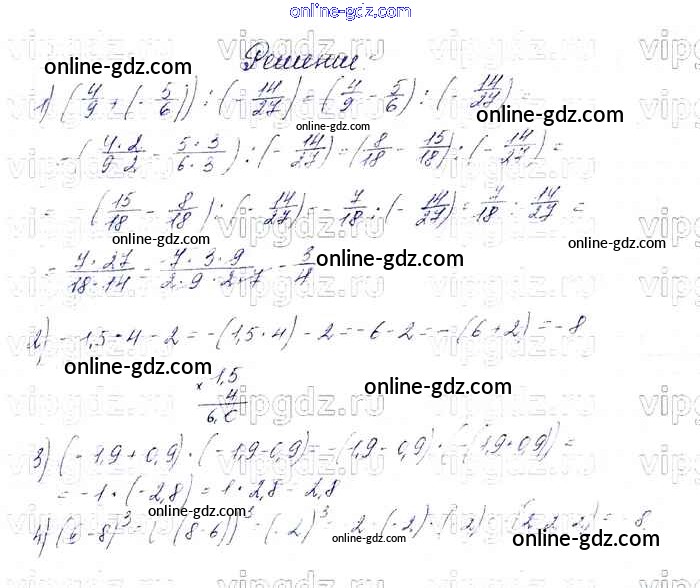 online-gdz.com
Решение:
online-gdz.com
1) (4/9 + (- 5/6)) : (- 14/27) = (4/9 - 5/6) : (- 14/27) =
online-gdz.com
= (4·2/9·2 - 5·3/6·3) : (- 14/27) = (8/18 - 15/18) : (- 14/27) =
online-gdz.com
= -(15/18 - 8/18) : (- 14/27) = - 7/18 : (- 14/27) = 7/18 : 14/27 =
online-gdz.com
online-gdz.com
= 7·27/18·14 = 7·3·9/2·9·2·7 = 3/4
online-gdz.com
2) -1,5·4-2 = -(1,5·4)-2 = -6-2 = -(6+2) = -8
online-gdz.com
× 1,5
4
6,0
online-gdz.com
3) (-1,9+0,9)·(-1,9-0,9) = -(1,9-0,9)·(-(1,9+0,9)) =
= -1·(-2,8) = 1·2,8 = 2,8
online-gdz.com
4) (6-8)³ = (-(8-6))³ = (-2)³ = -2·(-2)·(-2) = -(2·2·2) = -8
online-gdz.com
online-gdz.com
vipgdz.ru